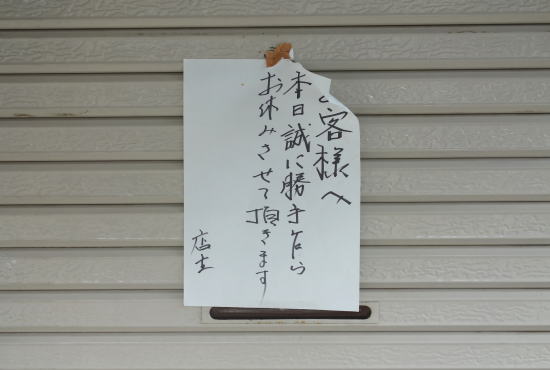 お客様へ
本日誠に勝手乍ら
お休みさせて頂きます
店主